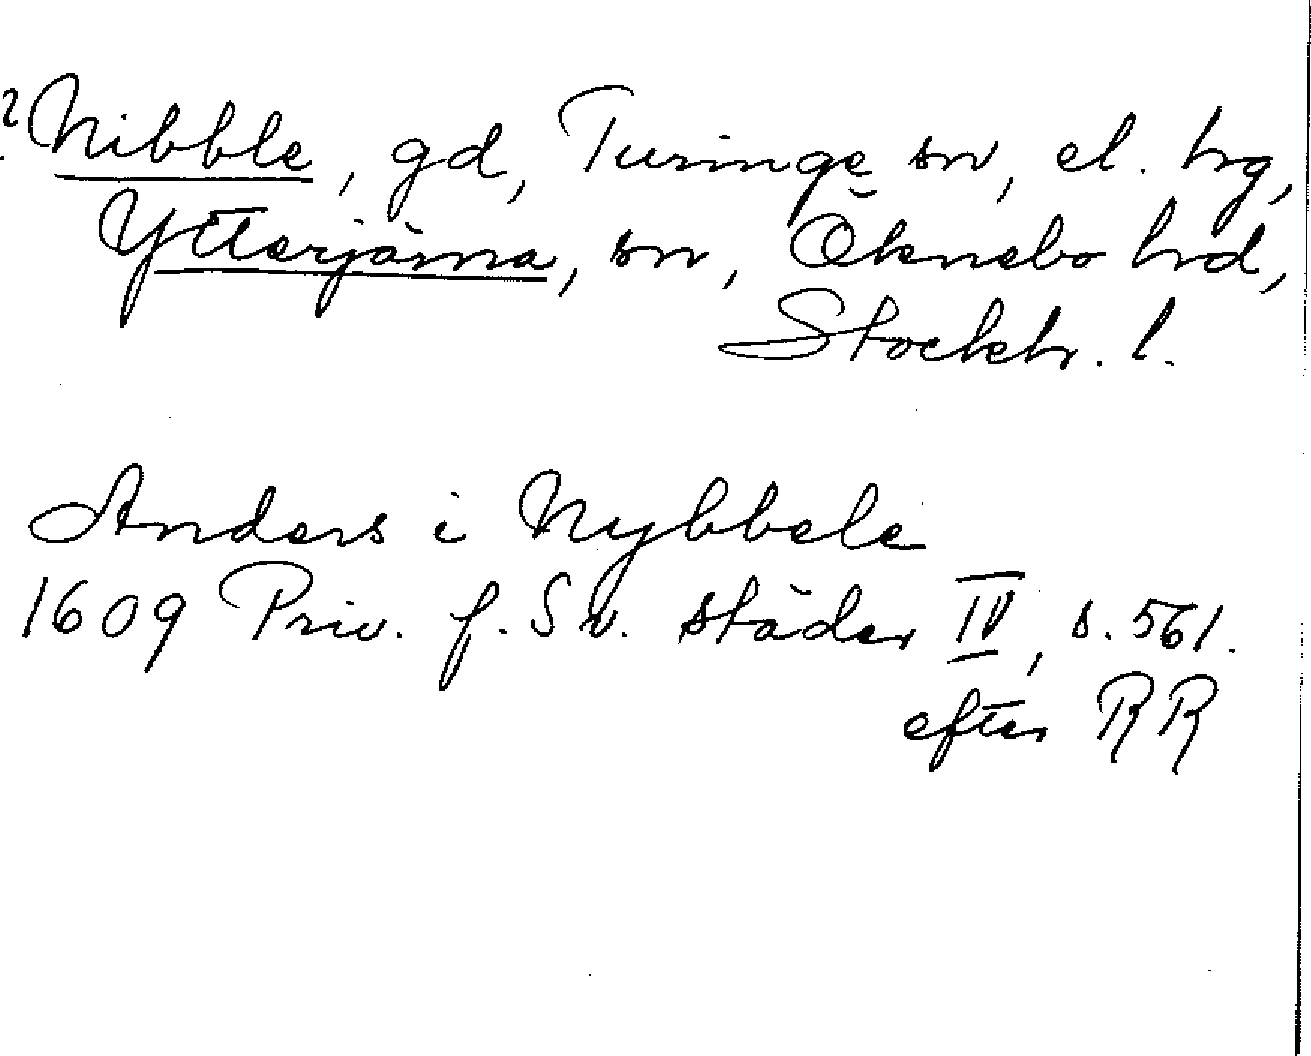 ? Nibble, gd, Turinge sn, el. hrg,
Ytterjärna, sn, Öknebo hrd,
Stockh. l.
Anders i Nybbele
1609 Priv. f. Sv. städer IV, s. 561.
efter RR